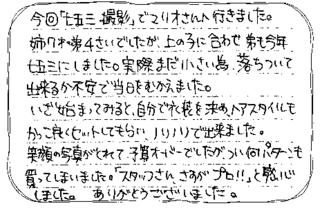 今回「七五三撮影」でスタジオさんへ行きました。
姉7才、弟4さいでしたが、上の子に合わせ弟も今年
七五三にしました。実際まだ小さい為、落ちついて
出来るか不安で当日をむかえました。
いざ始まってみると、自分で衣装を決め、ヘアスタイルも
かっこ良くセットしてもらい、ノリノリで出来ました。
笑顔の写真がとれて、予算オーバーでしたがつい何パターンも
買ってしまいました。「スタッフさん、さすがプロ!!」と感心
しました。 ありがとうございました。